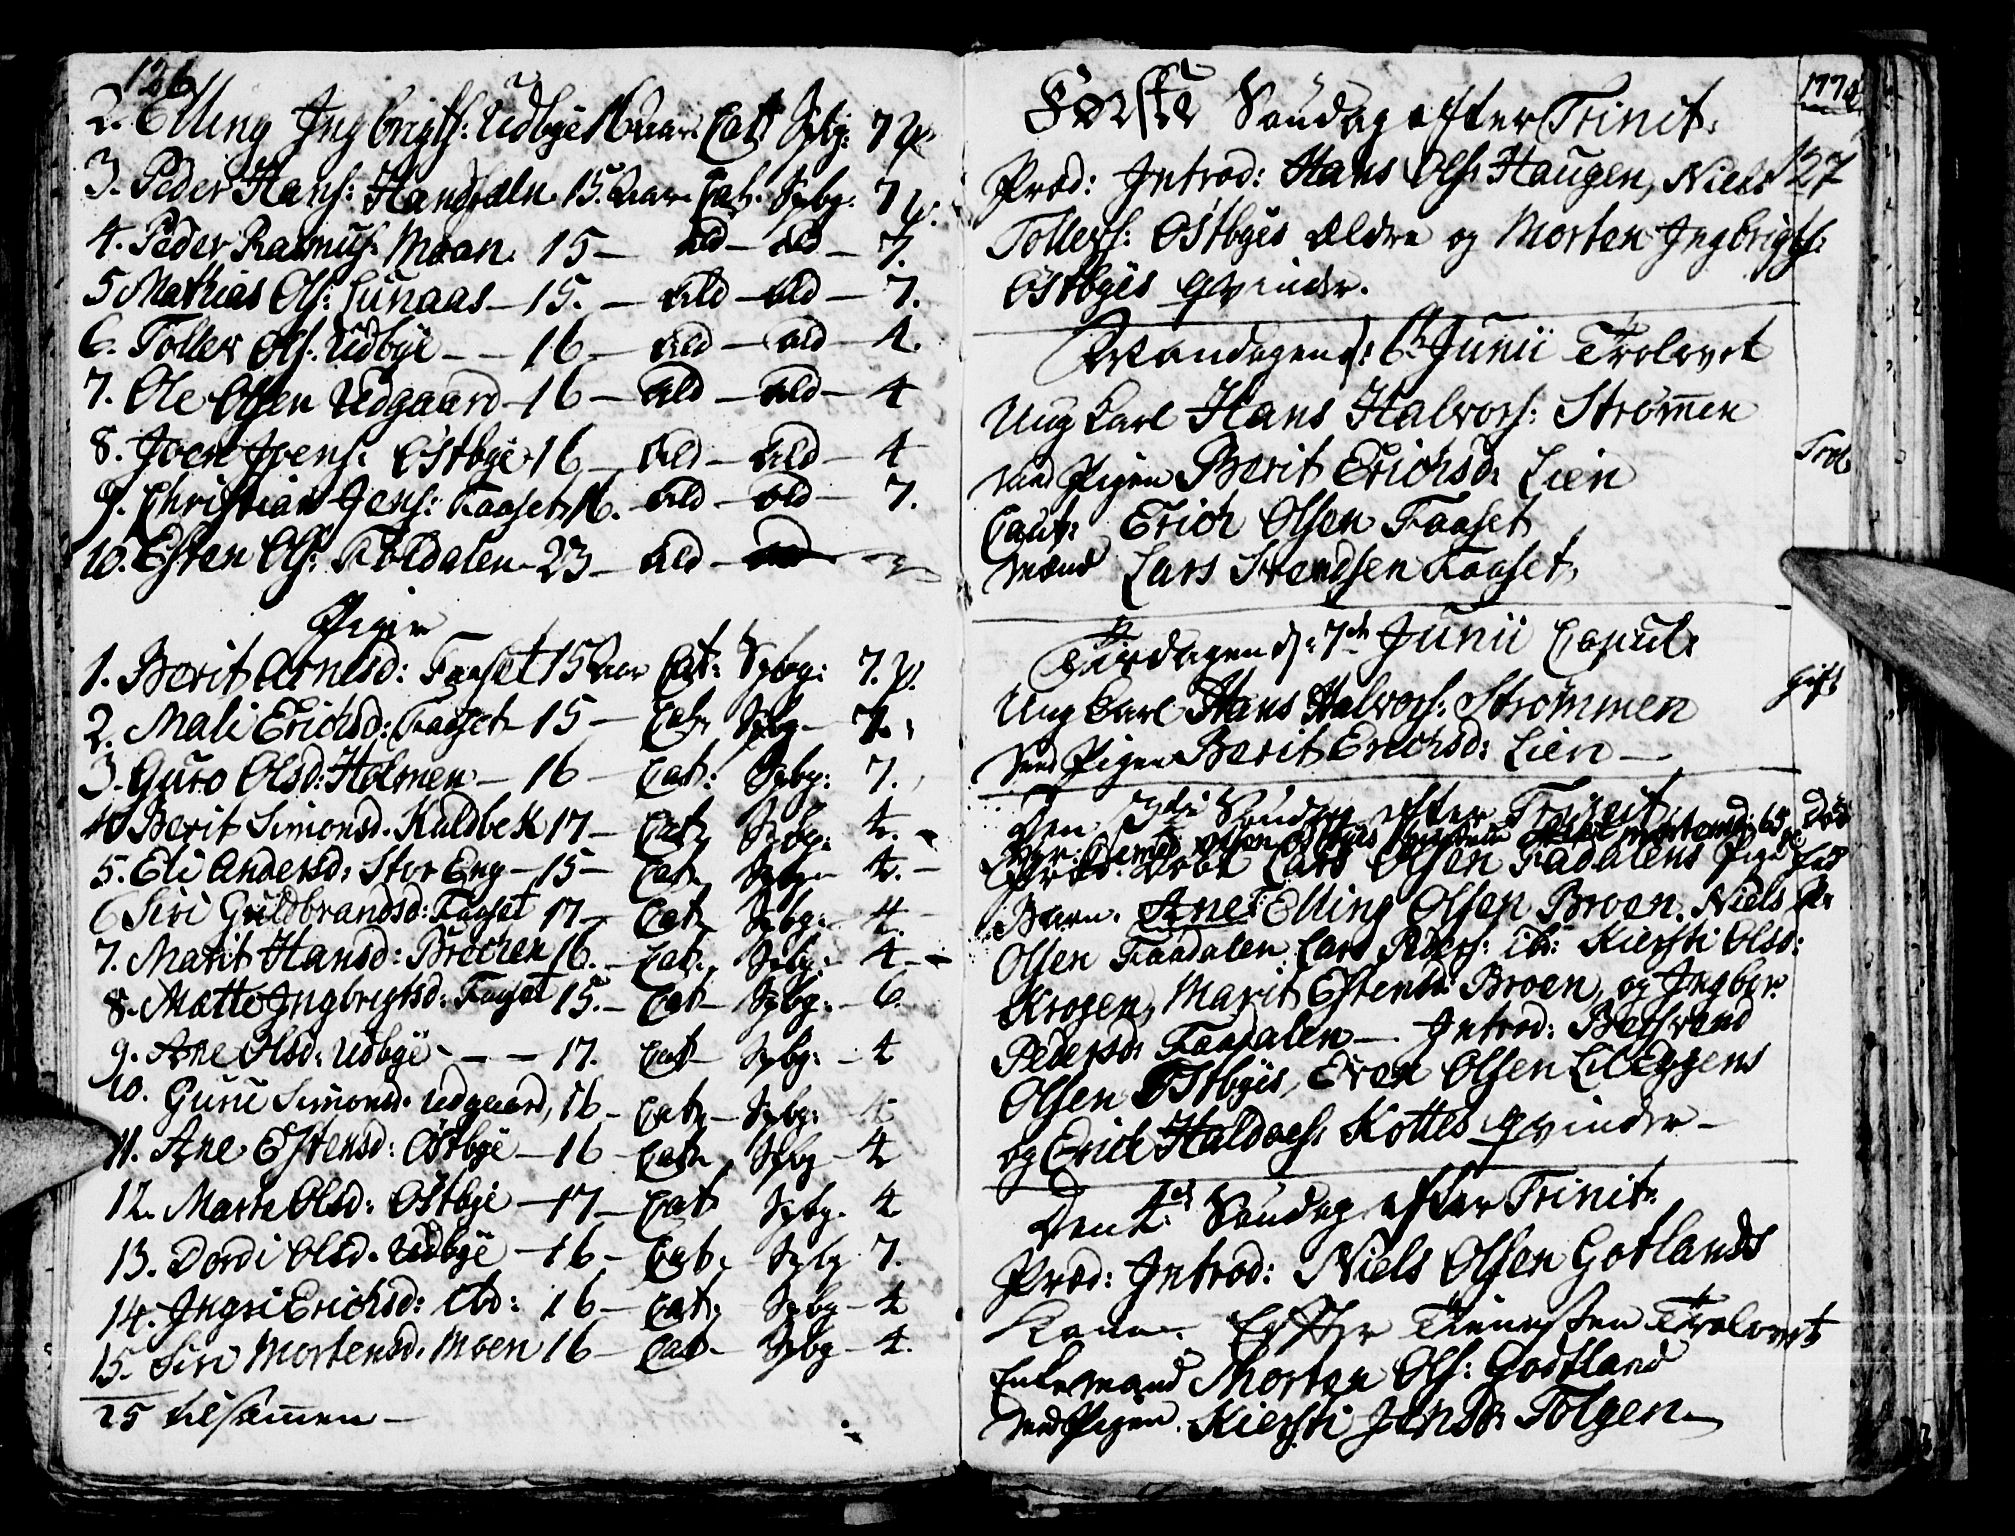 126
2. Elling Ingbrigts: Udbye 16 aar. Cat: Spbg: 7 p.
3. Peder Hans: Handsæln 15. aar. Cat: Spbg: 7 p.
4. Peder Rasmus: Moan. 15 — dld — dld — 7.
5 Mathias Ols: Lunaas — 15. — dld — dld — 7.
6. Toller Ols: Udbye — — 16 — dld — dld — 4.
7. Ole Olsen Udgaard — 16 — dld — dld — 4
8. Joen Joens: Østbye 16 — dld — dld — 4
9. Christian Jens: Faaset 16. dld — dld — 7.
10. Esten Ols: Foldalen — 23 — dld —
Piger
1. Berit Arnesd: Faaset 15 aar Cat: Spbg: 7. p.
2. Mali Erichsd: Faaset — 15 — Cat: Spbg — 7.
3. Guro Olsd: Holmen — 16 — Cat: Spbg: 7.
4 Berit Simonsd. Kuldbek 17 — Cat: Spbg: 4.
5. Eli Andersd: Stor Eng — 15 — Cat: Spbg — 4. —
6 Siri Guldbrandsd: Faaset 17 — Cat: Spbg: — 4.
7. Marit Hansd: Brochen 16. — Cat: Spbg: — 4 —
8. Matte Ingbrigtsd: Faaset 15. — Cat — Spbg: — 6.
9. Ane Olsd: Udbye — — 17. Cat — Spbg: — 4
10. Guru Simonsd. Udgaard, 16 — Cat — Spbg: 4
11. Ane Estensd: Østbye — 16 — Cat — Spbg — 4
12. Marte Olsd: Østbye — 17 — Cat Spbg. 4
13. Dordi Olsd. Udbye — 16 — Cat. Spbg 7.
14. Ingri Erichsd: ibd: 16 — Cat: Spbg — 4
15. Siri Mortensd. Moen 16 — Cat — Spbg — 4.
25 tilsamen —
1778
127
Første Søndag efter Trinit:
Præd: Introd: Hans Ols: Haugen, Niels
Tollefs: Østbyes ældre og Morten Ingbrigts:
Østbyes qvinder.
Mandagen d: 6t Junii Trolovet
Ung karl Hans Halvors: Strømen
med Pigen Berit Erichsd: Lien
Trol
Caut: Erich Olsen Faaset
mænd Lars Svendsen Faaset,
Tirsdagen d: 7de Junii Copul:
Ung karl Hans Halvors: Strømmen
gift
med Pigen Berit Erichsd: Lien —
Den 3die Søndag efter Trinit.
Olsen Østbyes Mortensd: 65
Død
Præd: Døbt Lars Olsen Faadalens Pige
Barn. Ane. F: Elling Olsen Broen. Niels
Olsen Faadalen. Lars Peders: ib: Kiersti Olsd:
Krogen, Marit Estensd: Broen, og Ingbor
Pedersd: Faadalen — Introd: Berthvend
Olsen Østbyes, Even Olsen Lil Eggens
og Erich Haldoes: Kottes qvinder —
Den 4de Søndag efter Trinit.
Præd: Introd: Niels Olsen Gotlands
Kone. Efter Tienesten Trolovet
Enkemand Morten Ols: Godtland
med Pigen Kiersti Jensd: Tolgen —